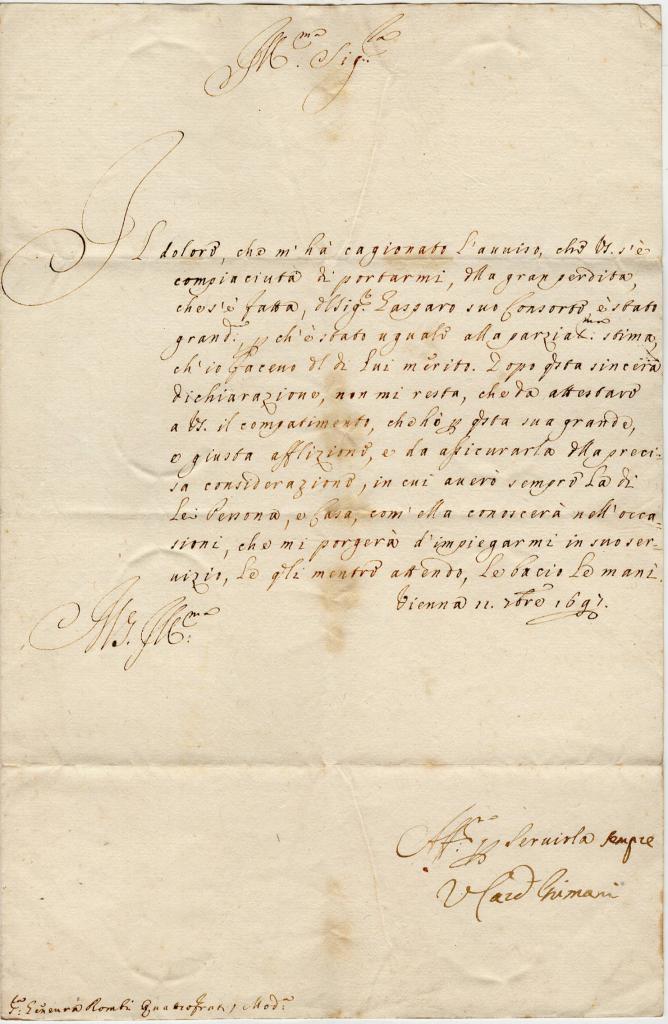 Ill.ma Sig.ra
Il dolore, che m'hà cagionato l'auuiso, che VS. s'è
compiaciuta di portarmi, dlla gran perdita,
che s'è fatta, dl Sig.r Gasparo suo Consorte è stato
grand:, ch'è stato uguale alla parzial:ma stima,
ch'io faceuo dl di lui merito. Dopo qsta sincera
dichiarazione, non mi resta, che da attestare
a VS. il compatimento, che hò p qsta sua grande,
e giusta afflizione, e da assicurarla dlla preci-
sa considerazione, in cui auerò sempre la di
Lei Persona, e Casa, com'ella conoscerà nell'occa-
sioni, che mi porgerà d'impiegarmi in suo ser-
uizio, le qli mentre attendo, le bacio le mani.
Vienna 11. 7bre 1697.
VS. Ill.ma
Aff.mo p seruirla sempre
V Card Grimani
S.ra Gineura Rombi Quattrofrati, Mod.a